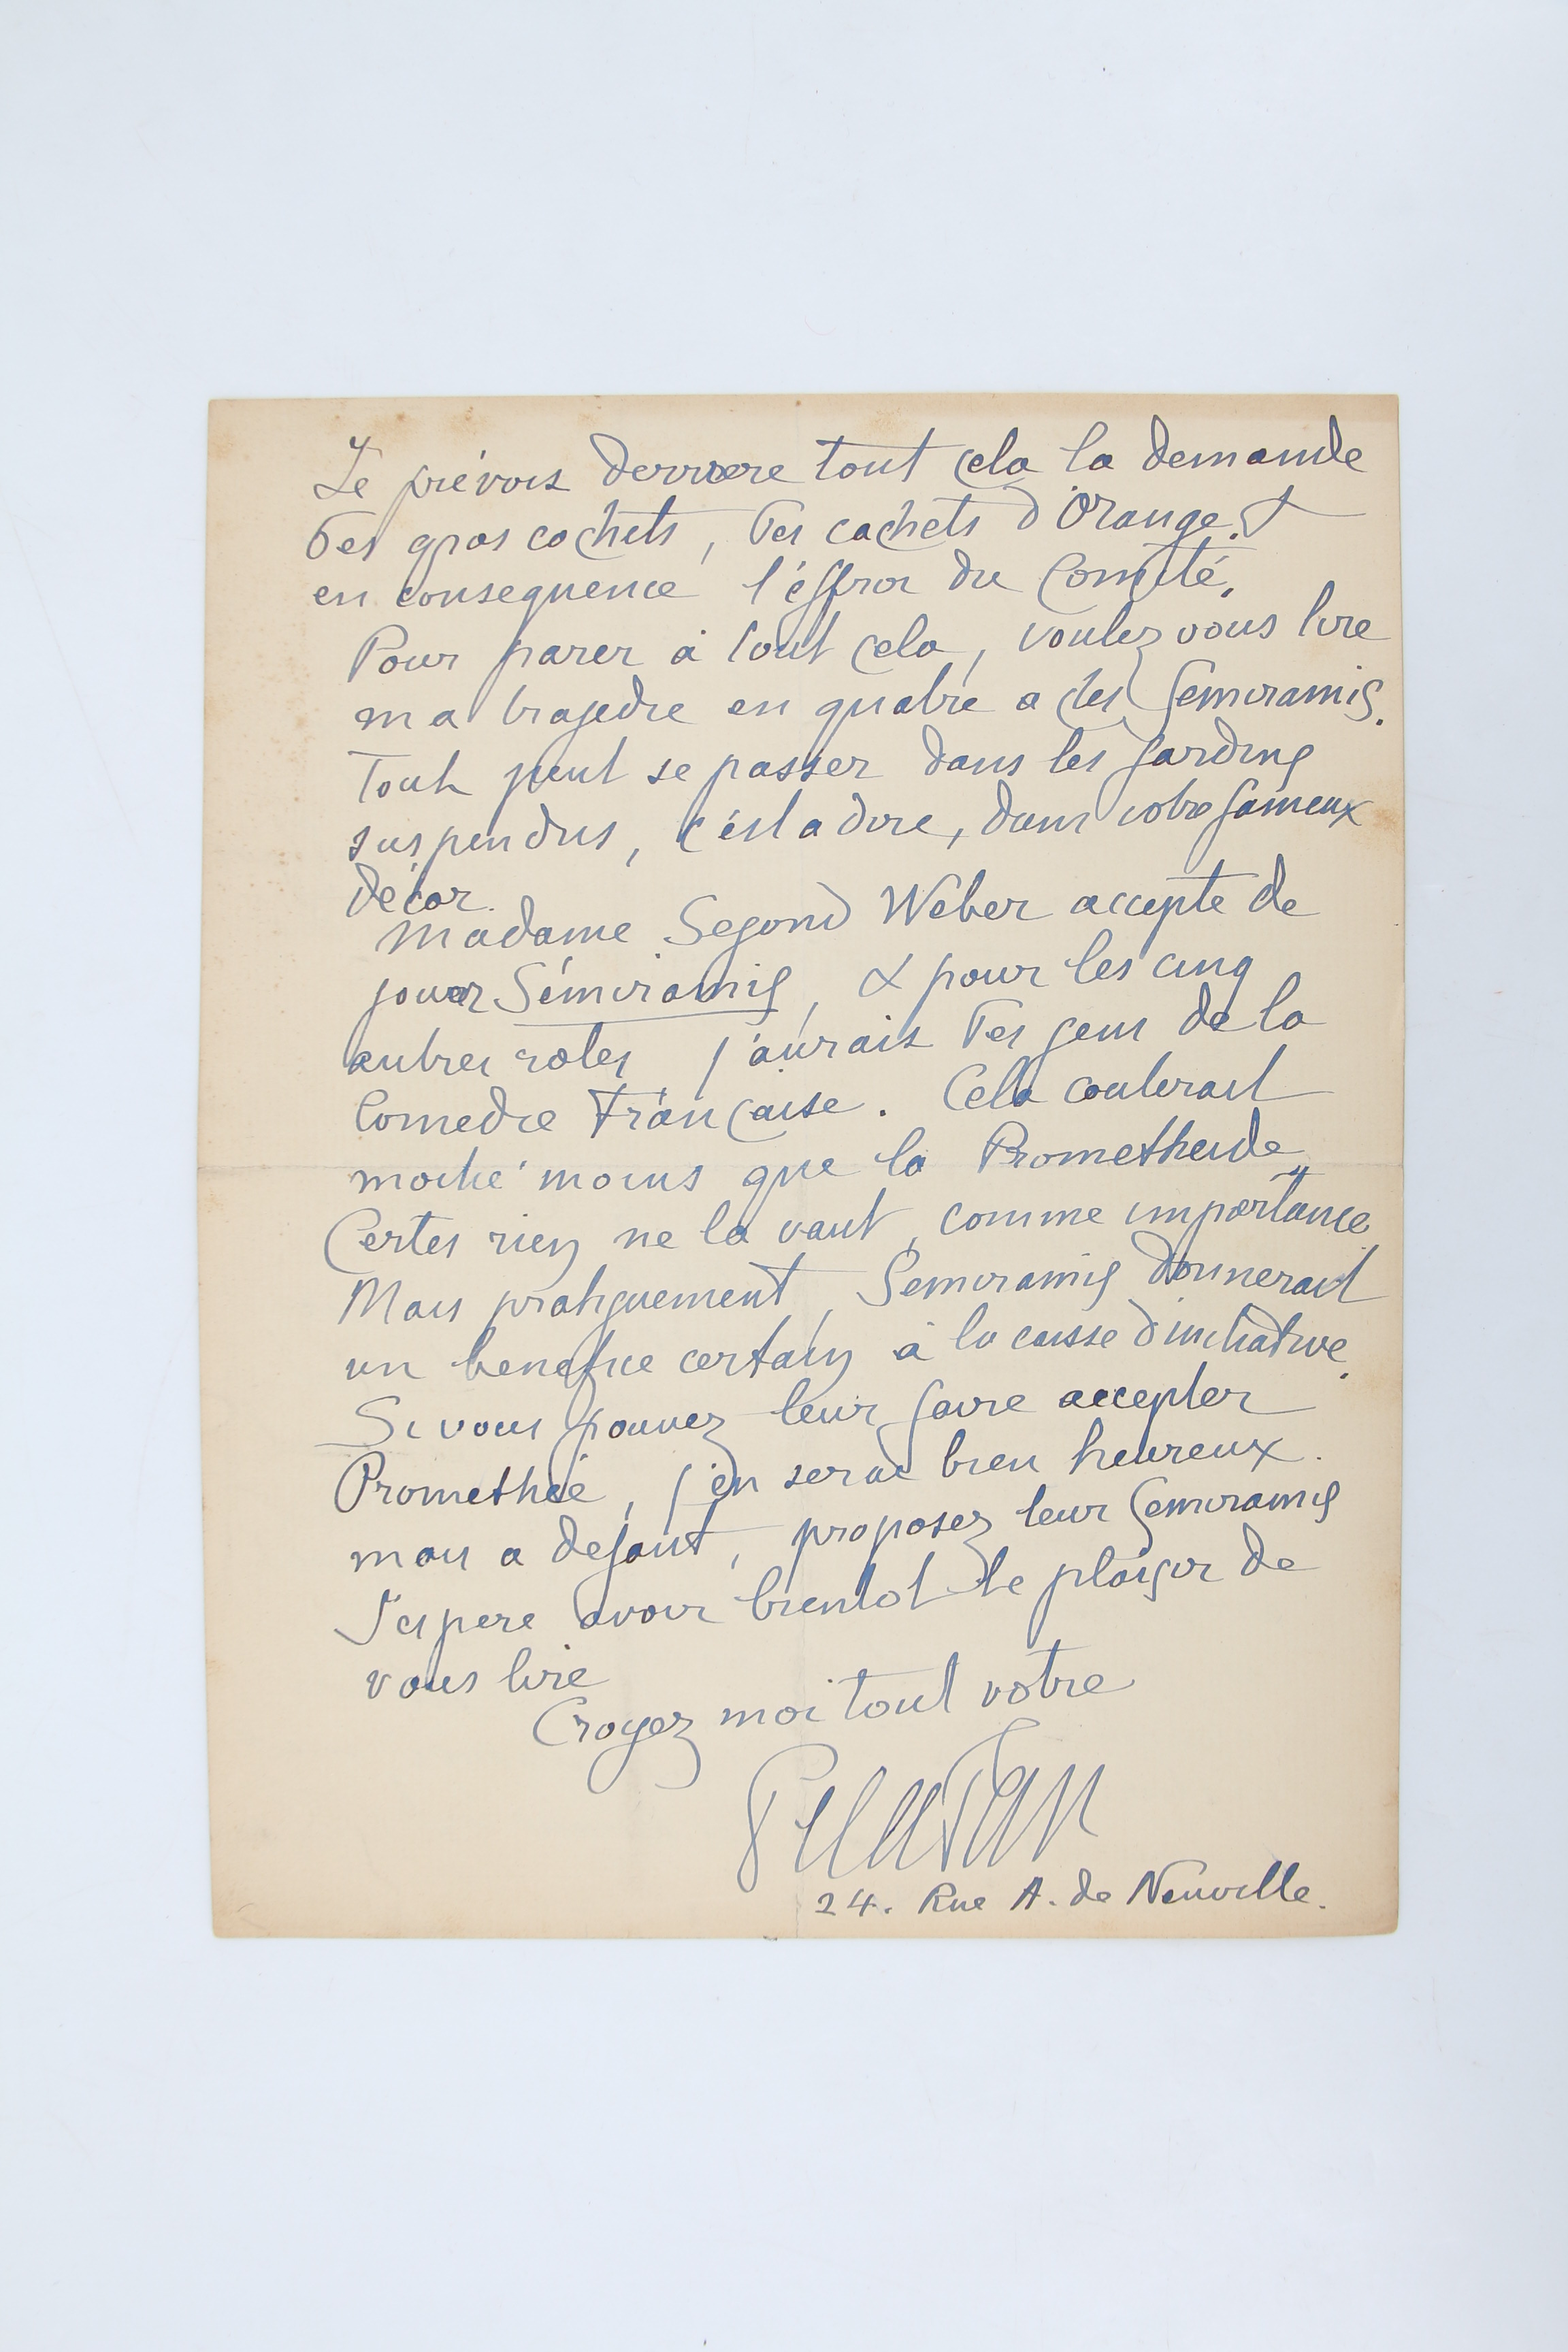 Je prévois derriere tout cela la demande
des gros cachets, des cachets d'Orange. &
en consequence l'effroi du Comité.
Pour parer à tout cela, voulez vous lire
ma tragedie en quatre actes Semiramis.
Tout peut se passer dans les jardins
suspendus, c'est a dire, dans votre fameux
décor.
Madame Segond Weber accepte de
jouer Sémiramis, & pour les cinq
autres roles j'aurais des gens de la
Comedie Française. Cela couterait
moitié moins que la Prometheide
Certes rien ne la vaut, comme importance
Mais pratiquement, Semiramis donnerait
un benefice certain à la caisse d'initiative.
Si vous pouvez leur faire accepter
Promethée, j'en serai bien heureux.
mais a defaut, proposez leur Semiramis
J'espere avoir bientot le plaisir de
vous lire
Croyez moi tout votre
Peladan
24. Rue A. de Neuville.